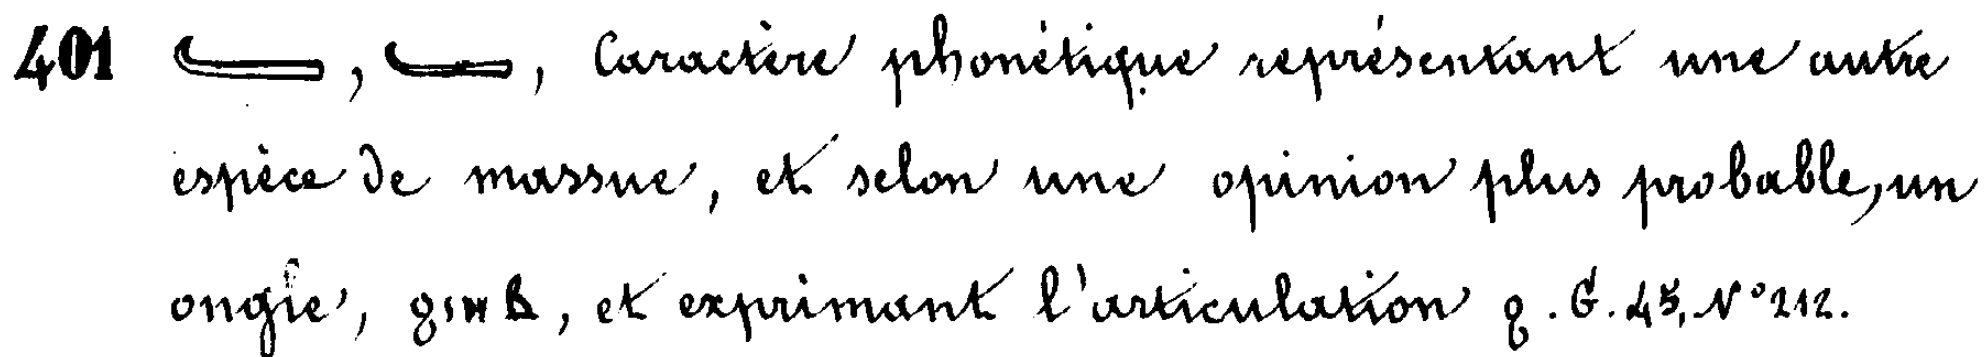 401 , , Caractère phonétique représentant une autre
espèce de massue, et selon une opinion plus probable, un
ongle, et exprimant l'articulation G. 45, N° 212.